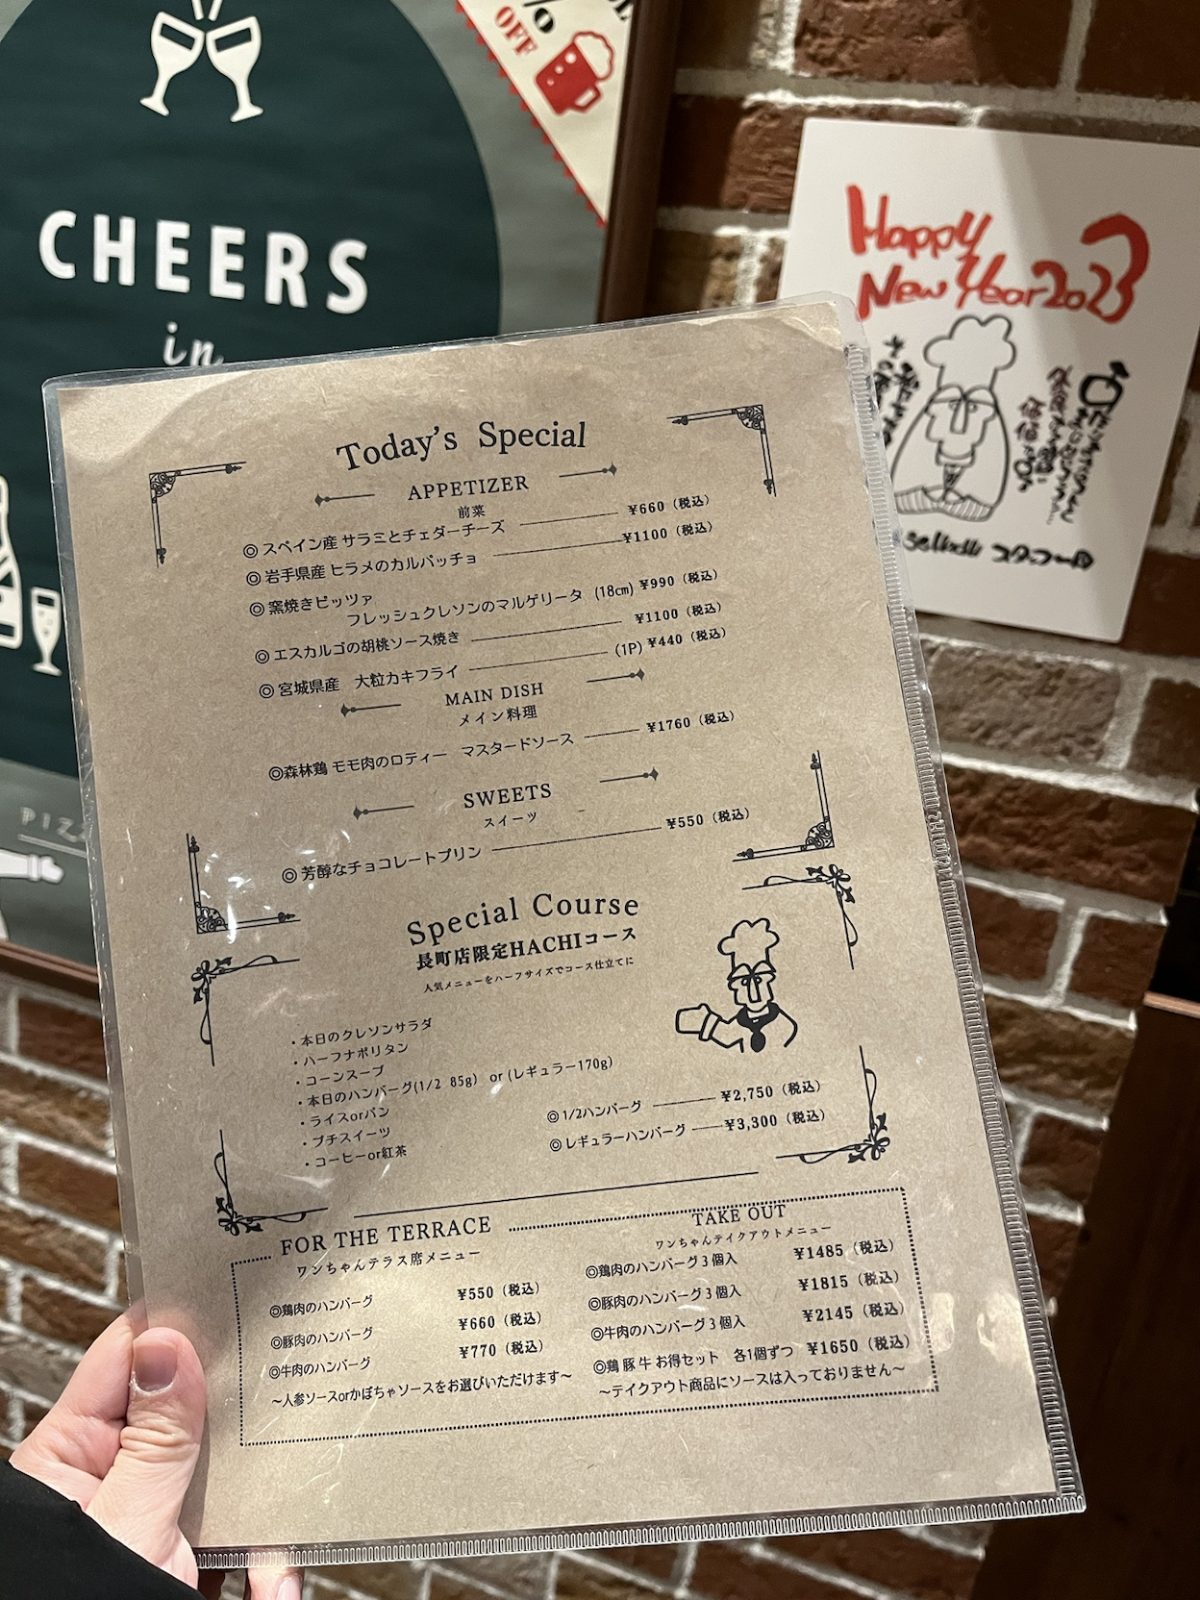 CHEERS
in
%
OFF
PIZZ
Happy
New Year 2023
Today's Special
APPETIZER
前菜
◎スペイン産 サラミとチェダーチーズ ¥660（税込）
◎岩手県産 ヒラメのカルパッチョ ¥1100（税込）
◎窯焼きピッツァ
フレッシュクレソンのマルゲリータ (18cm) ¥990（税込）
◎エスカルゴの胡桃ソース焼き ¥1100（税込）
◎宮城県産 大粒カキフライ (1P) ¥440（税込）
MAIN DISH
メイン料理
◎森林鶏 モモ肉のロティー マスタードソース ¥1760（税込）
SWEETS
スイーツ
◎芳醇なチョコレートプリン ¥550（税込）
Special Course
長町店限定HACHIコース
人気メニューをハーフサイズでコース仕立てに
・本日のクレソンサラダ
・ハーフナポリタン
・コーンスープ
・本日のハンバーグ(1/2 85g) or (レギュラー170g)
・ライスorパン
・プチスイーツ
・コーヒーor紅茶
◎1/2ハンバーグ ¥2,750（税込）
◎レギュラーハンバーグ ¥3,300（税込）
FOR THE TERRACE
ワンちゃんテラス席メニュー
◎鶏肉のハンバーグ ¥550（税込）
◎豚肉のハンバーグ ¥660（税込）
◎牛肉のハンバーグ ¥770（税込）
～人参ソースorかぼちゃソースをお選びいただけます～
TAKE OUT
ワンちゃんテイクアウトメニュー
◎鶏肉のハンバーグ３個入 ¥1485（税込）
◎豚肉のハンバーグ３個入 ¥1815（税込）
◎牛肉のハンバーグ３個入 ¥2145（税込）
◎鶏 豚 牛 お得セット 各1個ずつ ¥1650（税込）
～テイクアウト商品にソースは入っておりません～